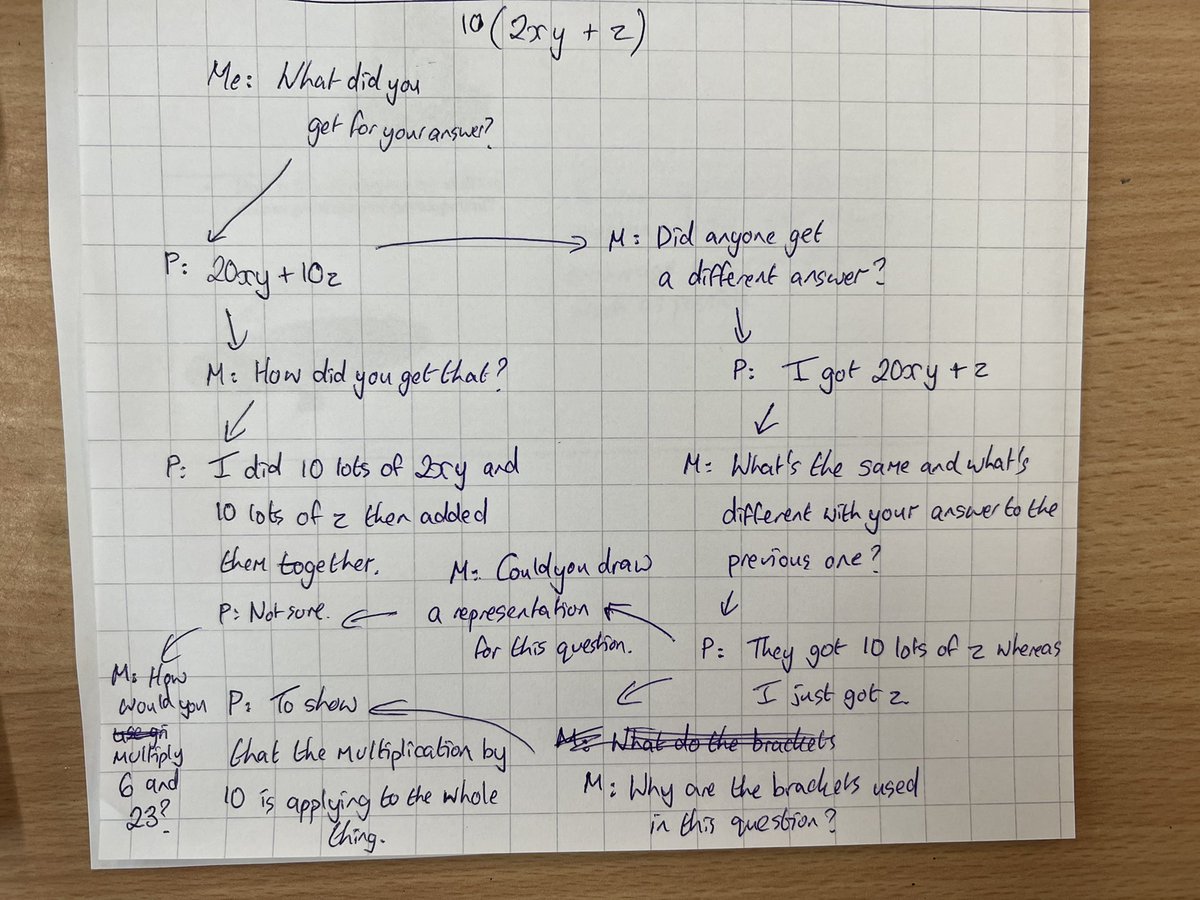 10(2xy + z)
Me: What did you
get for your answer?
P: 20xy + 10z
M: Did anyone get
a different answer?
M: How did you get that?
P: I got 20xy + z
P: I did 10 lots of 2xy and
10 lots of z then added
them together.
M: What's the same and what's
different with your answer to the
previous one?
P: They got 10 lots of z whereas
I just got z.
M: Could you draw
a representation
for this question.
P: Not sure.
M: How
would you
use gri
multiply
6 and
23?
M: What do the brackets
M: Why are the brackets used
in this question?
P: To show
that the multiplication by
10 is applying to the whole
thing.